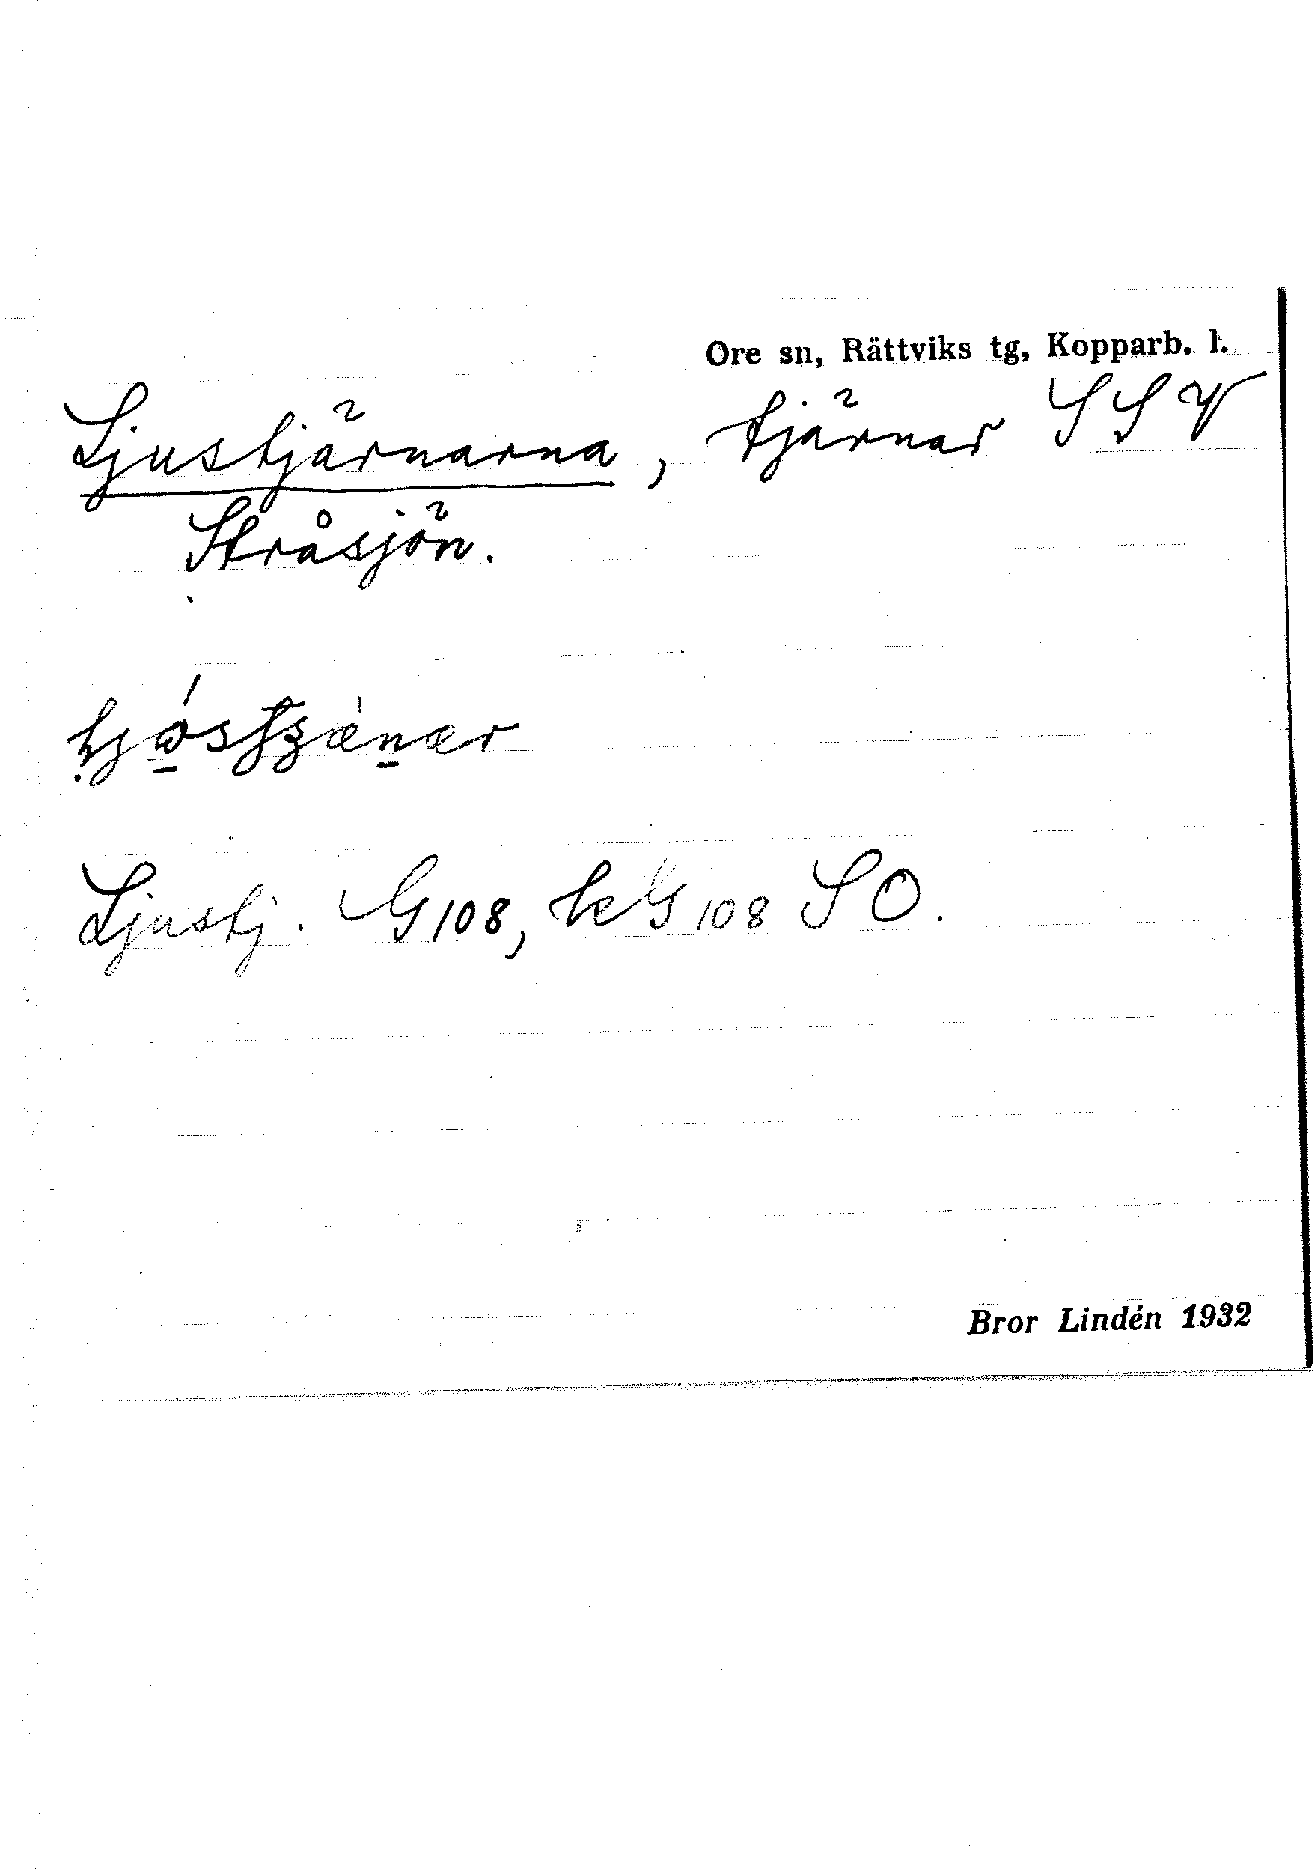 Ore sn, Rättviks tg, Kopparb. l.
Ljustjärnarna, tjärnar SSV
Stråsjön.
Ljustj. G108, keG108 SO.
Bror Lindén 1932